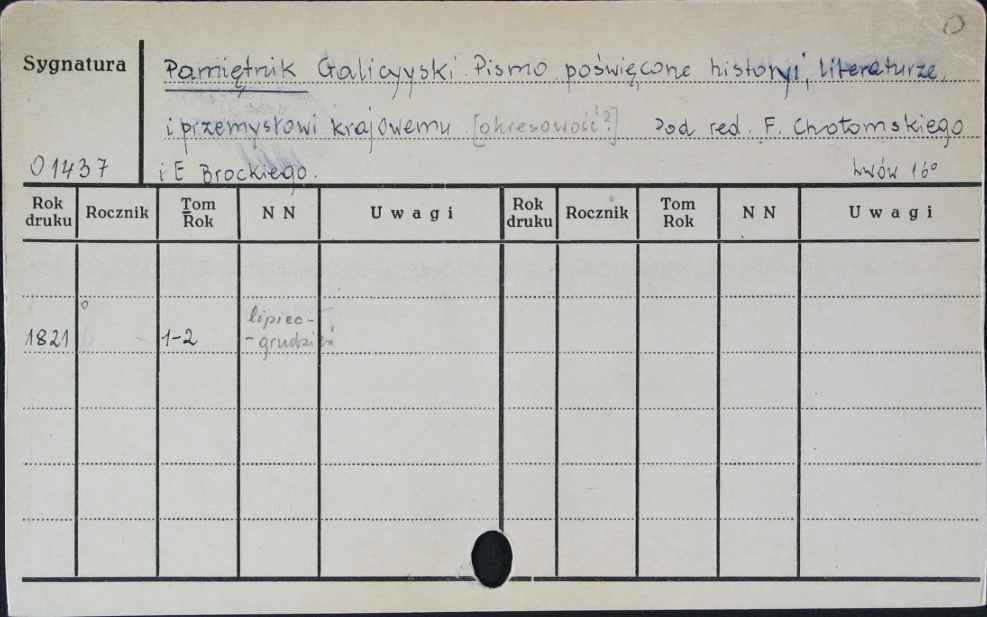 Sygnatura
Pamiętnik Galicyyski Pismo poświęcone historyi, literaturze,
i przemysłowi krajowemu [okresowość?] Pod red. F. Chotomskiego
O1437 i E Brockiego. Lwów 16°
Rok druku Rocznik Tom Rok N N Uwagi Rok druku Rocznik Tom Rok N N Uwagi
lipiec-
1821 1-2 -grudzień